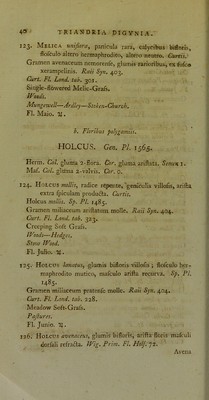 40 TRIANDRIA DIGYNIA.
123. MELICA uniflora, panicula rara, calycibus bifloris,
flosculo altero hermaphrodito, altero neutro. Curtis.
Gramen avenaceum nemorense, glumis rarioribus, ex fusco
xerampelinis. Raii Syn. 403.
Curt. Fl. Lond. tab. 301.
Single-flowered Melic-Grass.
Woods.
Mungewell—Ardley—Stoken-Church.
Fl. Maio. ♃.
b. Floribus polygamis.
HOLCUS. Gen. Pl. 1565.
Herm. Cal. gluma 2-flora. Cor. gluma aristata. Semen 1.
Mas. Cal. gluma 2-valvis. Cor. 0.
124. HOLCUS mollis, radice repente, genitulis villosis, arista
extra spiculam producta. Curtis.
Holcus mollis. Sp. Pl. 1485.
Gramen miliaceum aristatum molle. Raii Syn. 404.
Curt. Fl. Lond. tab. 323.
Creeping Soft Grass.
Woods—Hedges.
Stow Wood.
Fl. Julio. ♃.
125. HOLCUS lanatus, glumis bifloris villosis; flosculo her-
maphrodito mutico, masculo arista recurva. Sp. Pl.
1485.
Gramen miliaceum pratense molle. Raii Syn. 404.
Curt. Fl. Lond. tab. 228.
Meadow Soft-Grass.
Pastures.
Fl. Junio. ♃.
126. HOLCUS avenaceus, glumis bifloris, arista floris masculi
dorsali refracta. Wig. Prim. Fl. Hols. 72.
Avena